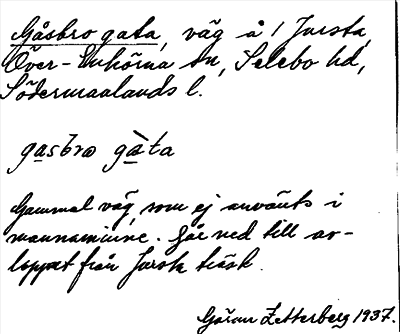 Gåsbro gata, väg å 1 Jursta,
Över-Enhörna sn, Selebo hd,
Södermanlands l.
gasbro gàta
Gammal väg, som ej använts i
mannaminne. Går ned till av-
loppet från Jursta träsk.
Göran Zetterberg 1937.